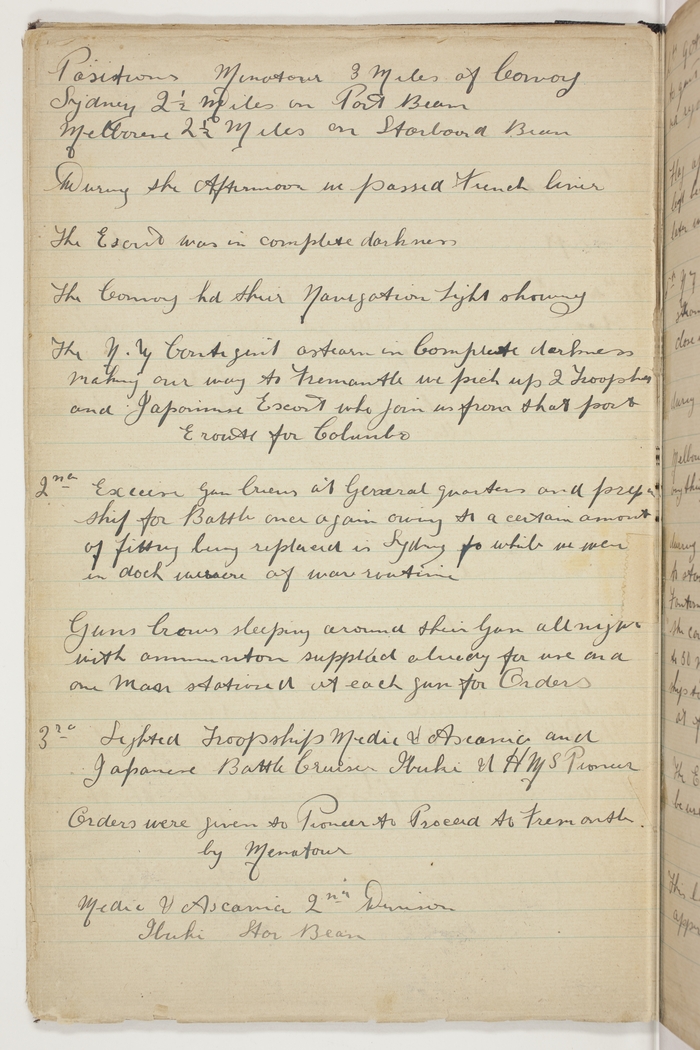 Positions Minotaur 3 Miles of Convoy
Sydney 2½ Miles on Port Beam
Melbourne 2½ Miles on Starboard Beam
During the Afternoon we passed French liner
The Escort was in complete darkness
The Convoy hd their Navigation Light showing
The N.Z Contigint astearn in Complete darkness
making our way to Fremantle we pick up 2 Troopships
and Japannise Escort who join us from that port
Eroute for Columbo
2nd Excerise Gun Crews at General quarters and prepare
ship for Battle once again owing to a certain amount
of fitting being replaced in Sydney while we were
in dock of war routine
Guns Crews sleeping around their Gun all night
with ammuniton supplied already for use and
one Man stationed at each gun for Orders
3rd Sighted Troopship Medic & Ascania and
Japanese Battle Cruiser Ibuki & HMS Pioneer
Orders were given to Pioneer to Proceed to Fremantle.
by Menatour
Medic & Ascania 2nd Division
Ibuki Star Beam